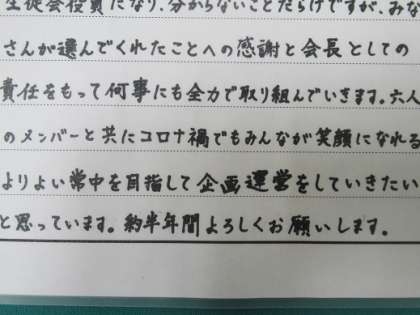 生徒会役員になり、分からないことだらけですが、みな
さんが選んでくれたことへの感謝と会長としての
責任をもって何事にも全力で取り組んでいきます。六人
のメンバーと共にコロナ禍でもみんなが笑顔になれる
よりよい常中を目指して企画運営をしていきたい
と思っています。約半年間よろしくお願いします。